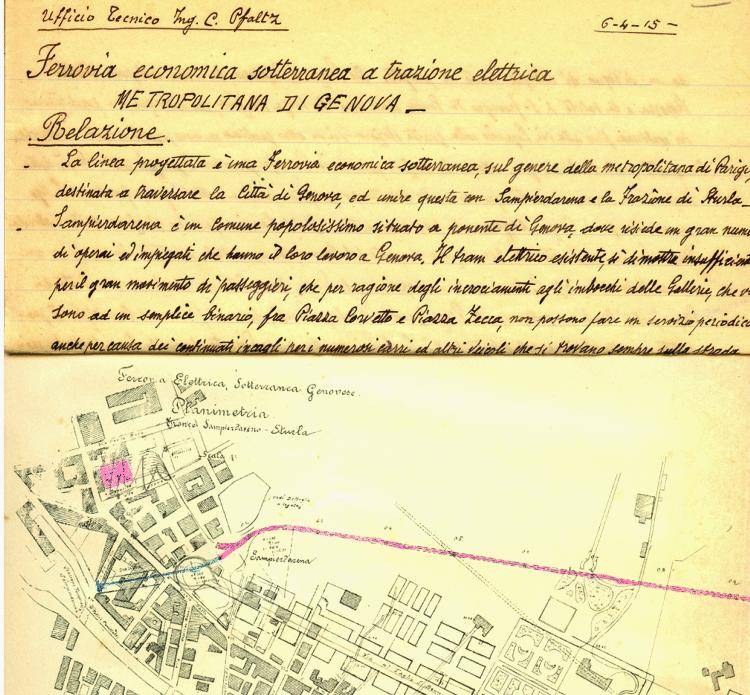 Ufficio Tecnico Ing. C. Pfaltz
6-4-15-
Ferrovia economica sotterranea a trazione elettrica
METROPOLITANA DI GENOVA_
Relazione.
La linea progettata è una Ferrovia economica sotterranea, sul genere della metropolitana di Parigi,
destinata a traversare la Città di Genova, ed unire questa con Sampierdarena e la Frazione di Sturla_
Sampierdarena è un comune popolosissimo situato a ponente di Genova, dove risiede un gran nume
di operai ed impiegati che hanno il loro lavoro a Genova. Il tram elettrico esistente, si dimostra insufficien
per il gran movimento di passeggieri, che per ragione degli incrociamenti agli imbocchi delle Gallerie, che
sono ad un semplice binario, fra Piazza Corvetto e Piazza Zecca, non possono fare un servizio periodico
anche per causa dei continuati incagli per i numerosi carri ed altri veicoli che si trovano sempre sulla strada
Ferrovia Elettrica, Sotterranea Genovese.
Planimetria
Tronco Sampierdarena - Sturla
Scala 1:
Sampierdarena